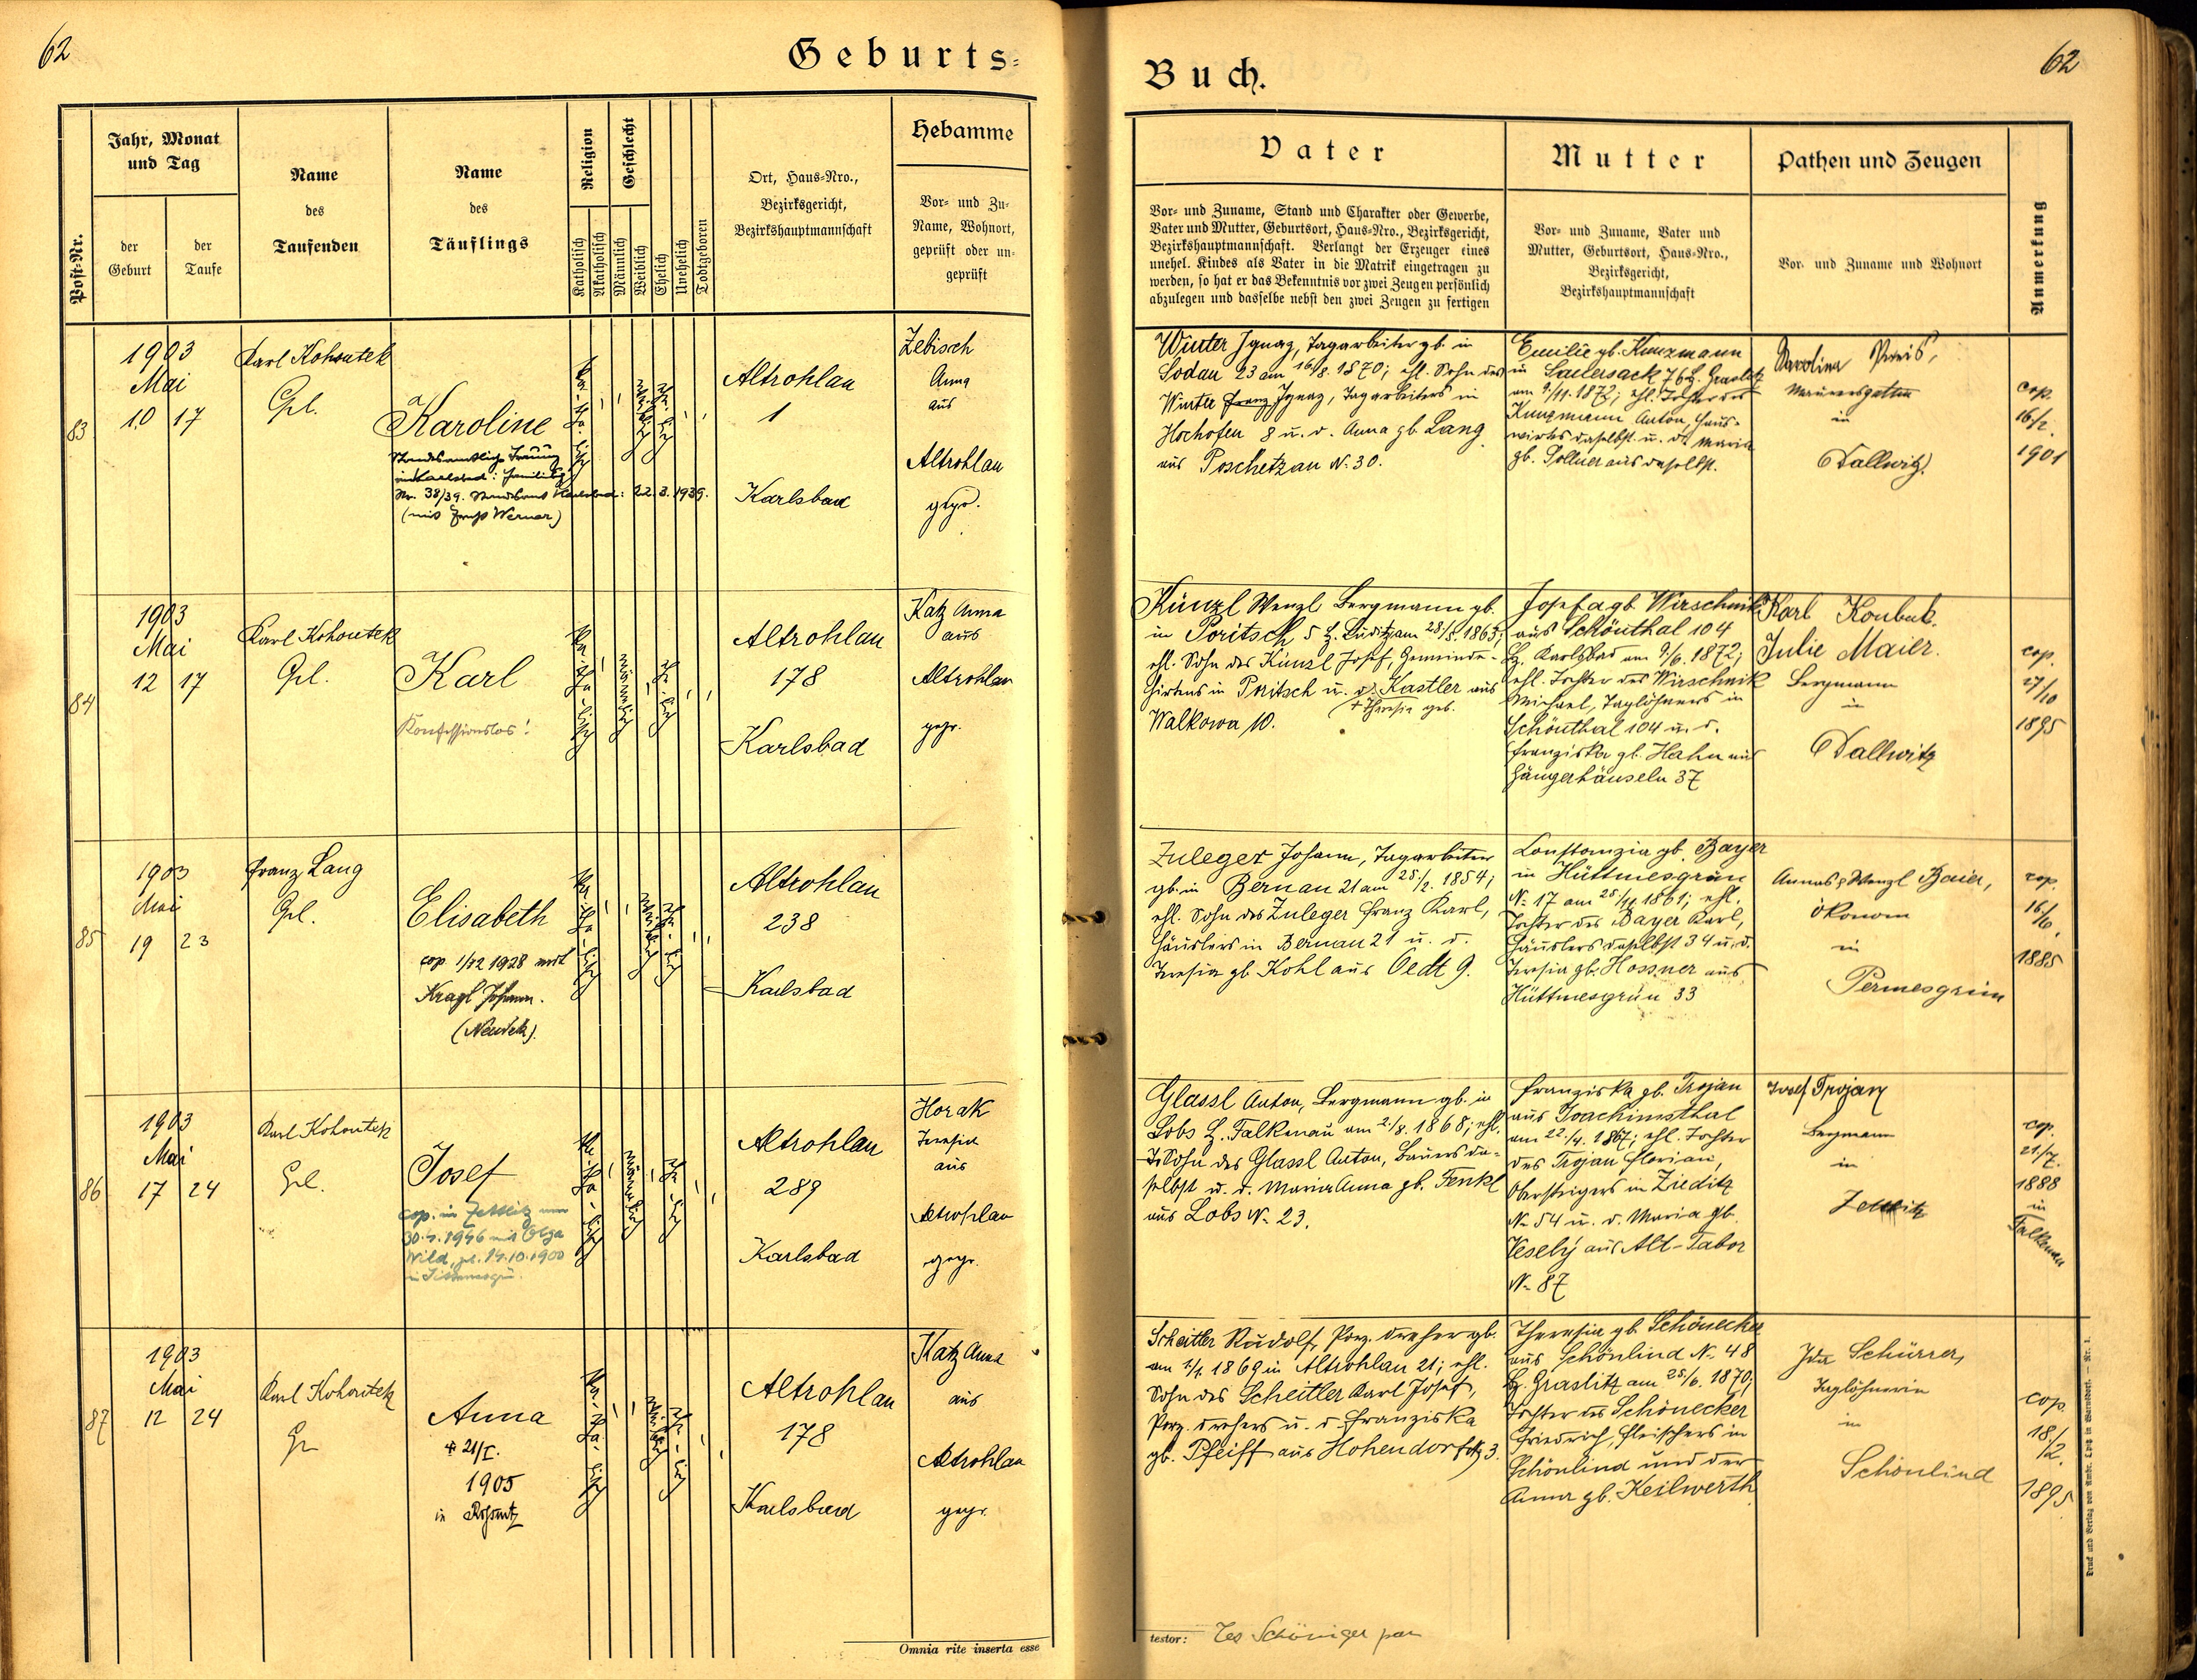 62
Geburts=
Post-Nr.
Jahr, Monat
und Tag
der
Geburt
der
Taufe
Name
des
Taufenden
Name
des
Täuflings
Religion
Katholisch
Akatholisch
Geschlecht
Männlich
Weiblich
Ehelich
Unehelich
Todtgeboren
Ort, Haus=Nro.,
Bezirksgericht,
Bezirkshauptmannschaft
Hebamme
Vor= und Zu=
Name, Wohnort,
geprüft oder un=
geprüft
83
1903
Mai
10 17
Karl Kohoutek
Gel.
Karoline
Standesamtliche Trauung
in Karlsbad: Familienb.
Nr. 38/39. Standesamt Karlsbad: 22.3.1939.
(mit Werner)
Ka-
tho-
lisch
Altrohlau
1
Karlsbad
Zebisch
Anna
aus
Altrohlau
gepr.
84
1903
Mai
12 17
Karl Kohoutek
Gel.
Karl
Konfessionslos!
Altrohlau
178
Karlsbad
Katz Anna
aus
Altrohlau
gepr.
85
1903
Mai
19 23
Franz Lang
Gel.
Elisabeth
cop 1/12 1928 mit
Kragl Johann.
(Neudek).
Altrohlau
238
Karlsbad
86
1903
Mai
17 24
Karl Kohoutek
Gel.
Josef
cop. in Zettlitz am
30.4.1946 mit Olga
Wild, geb. 14.10.1900
Altrohlau
289
Karlsbad
Horak
Theresia
aus
Altrohlau
gepr.
87
1903
Mai
12 24
Karl Kohoutek
Anna
+ 21/I.
1905
in
Altrohlau
178
Karlsbad
Katz Anna
aus
Altrohlau
gepr.
Omnia rite inserta esse
Buch.
62
Vater
Vor= und Zuname, Stand und Charakter oder Gewerbe,
Vater und Mutter, Geburtsort, Haus=Nro., Bezirksgericht,
Bezirkshauptmannschaft. Verlangt der Erzeuger eines
unehel. Kindes als Vater in die Matrik eingetragen zu
werden, so hat er das Bekenntnis vor zwei Zeugen persönlich
abzulegen und dasselbe nebst den zwei Zeugen zu fertigen
Mutter
Vor= und Zuname, Vater und
Mutter, Geburtsort, Haus=Nro.,
Bezirksgericht,
Bezirkshauptmannschaft
Pathen und Zeugen
Vor= und Zuname und Wohnort
Anmerkung
Winter Ignaz, Tagarbeiter gb. in
Sodau 23 am 16/8. 1870; ehl. Sohn des
Winter Franz Ignaz, Tagarbeiters in
Hochofen 8 u. d. Anna gb. Lang
aus Poschetzau N. 30.
Emilie gb. Kunzmann
in Sauersack 76 B. Graslitz
am 9/11. 1872; ehl. Tochter des
Kunzmann Anton, Haus-
wirts daselbst u. d. Maria
gb. Sollner aus daselbst.
Karolina
Maurersgattin
in
Dallwitz
cop.
16/2.
1901
Künzl Wenzl Bergmann gb.
in Poritsch 5 B. Luditz am 28/8. 1863;
ehl. Sohn des Künzl Josef, Gemeinde-
hirtens in Poritsch u. d. Kastler aus
+ Theresia geb.
Walkowa 10.
Josefa gb. Wirschnik
aus Schönthal 104
B. Karlsbad am 9/6. 1872;
ehl. Tochter des Wirschnik
Michael, Taglöhners in
Schönthal 104 u. d.
Franziska gb. Hahn aus
Hängerhäuseln 37
Karl Koubek.
Julie Maier.
Bergmann
in
Dallwitz
cop.
27/10
1895
Zuleger Johann, Tagarbeiter
gb. in Bernau 21 am 25/2. 1854;
ehl. Sohn des Zuleger Franz Karl,
Häuslers in Bernau 21 u. d.
Theresia gb. Kohl aus Oedt 9.
Constanzia gb. Bayer
in Hüttmesgrün
No 17 am 25/11. 1861; ehl.
Tochter des Bayer Karl,
Häuslers daselbst 34 u. d.
Theresia gb. Hossner aus
Hüttmesgrün 33
Anna & Wenzl Baier,
Ökonom
in
Permesgrün
cop.
16/6.
1885
Glassl Anton, Bergmann gb. in
Lobs B. Falkenau am 2/8. 1868; ehl.
Sohn des Glassl Anton, Bauers da-
selbst u. d. Maria Anna gb. Fenkl
aus Lobs No 23.
Franziska gb. Trojan
aus Joachimsthal
am 22/4. 1867; ehl. Tochter
des Trojan Florian,
Obersteigers in Zieditz
No 54 u. d. Maria gb.
Veselý aus Alt-Tabor
No 87
Josef Trojan
Bergmann
in
Zettlitz
cop.
21/7.
1888
in
Falkenau
Scheitler Rudolf, Porz. dreher gb.
am 1/4. 1869 in Altrohlau 21; ehl.
Sohn des Scheitler Karl Josef,
Porz. drehers u. d. Franziska
gb. Pfeiff aus Hohendorf 3.
Theresia gb. Schönecker
aus Schönlind No 48
B. Graslitz am 25/6. 1870;
Tochter des Schönecker
Friedrich, Fleischers in
Schönlind und der
Anna gb. Keilwerth
Ida Schürrer,
Taglöhnerin
in
Schönlind
cop.
18/2.
1895
testor:
Druck und Verlag von Ambr. Opitz in Warnsdorf. — Nr. 1.